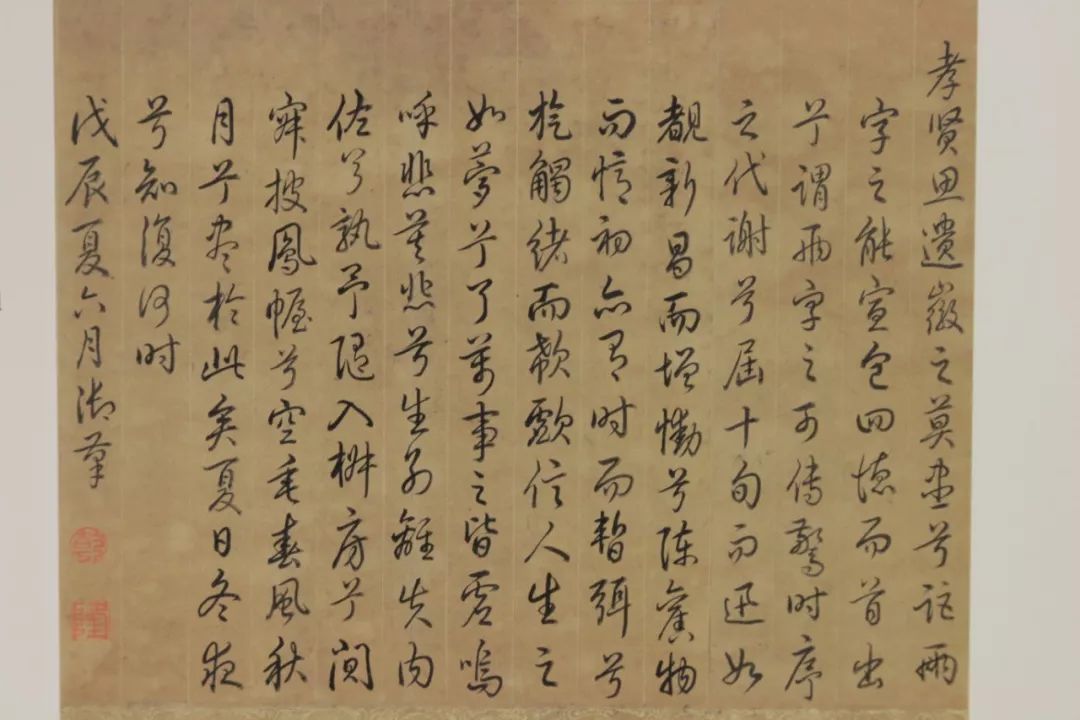 孝賢思遺徽之莫盡兮詎兩
字之能宣包四德而首出
兮謂兩字之可傳驚时序
之代謝兮届十旬而迅如
覩新昌而增慟兮陳舊物
而憶初亦有时而暫弭兮
旋觸緒而欷歔信人生之
如夢兮了萬事之皆虚嗚
呼悲莫悲兮生别離失内
佐兮孰予随入椒房兮闃
寂披鳳幄兮空垂春風秋
月兮盡於此矣夏日冬夜
兮知復何时
戊辰夏六月御筆
乾
隆